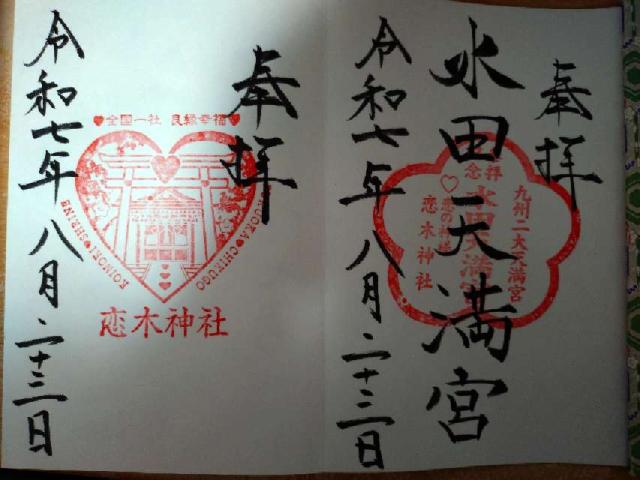 奉拝
水田天満宮
令和七年八月二十三日
九州二大天満宮
水田天満宮
恋の神様
恋木神社
奉拝
♥全国一社 良縁幸福♥
KOINOKI SHRINE
FUKUOKA CHIKUGO
恋木神社
令和七年八月二十三日